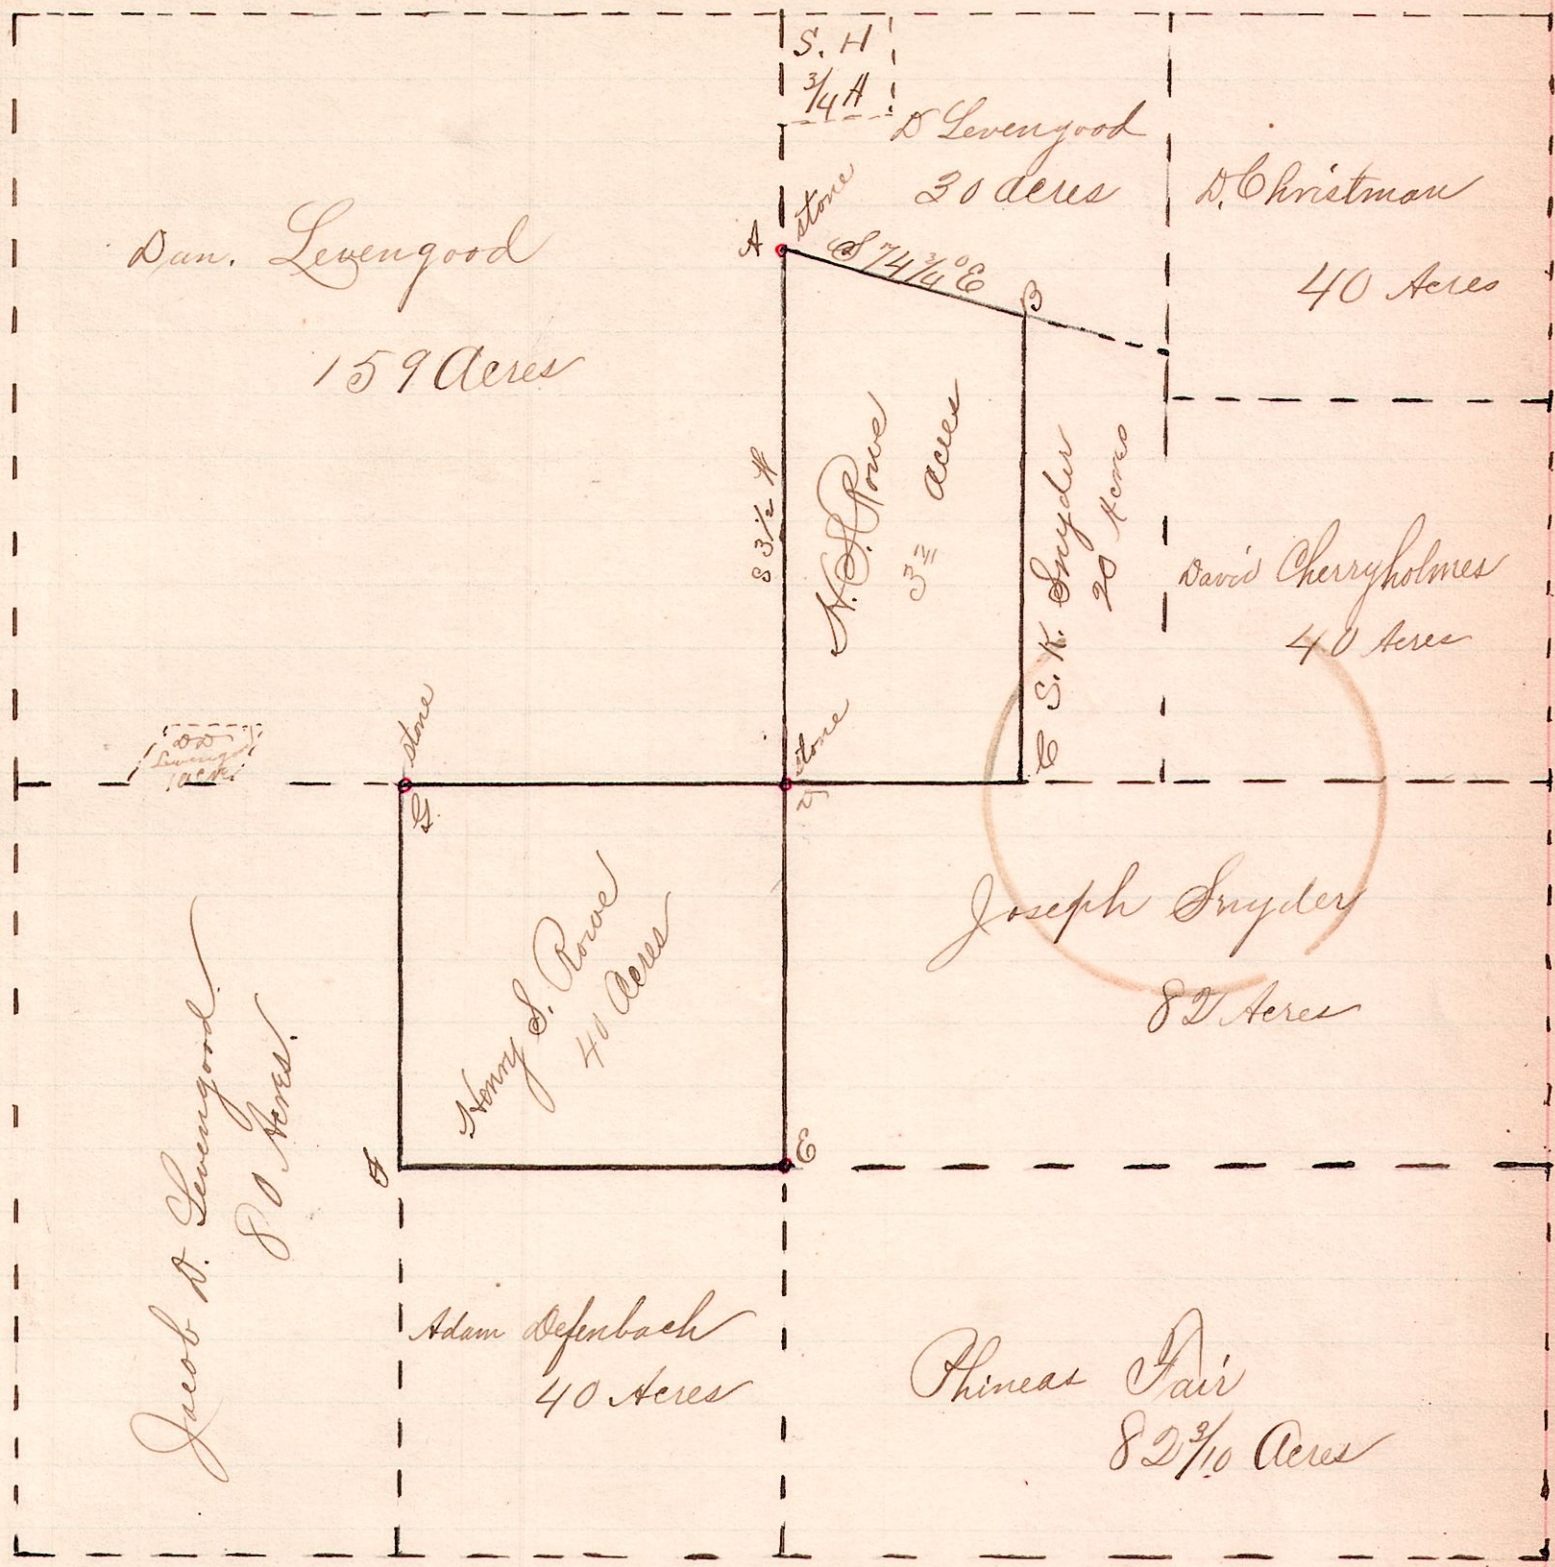 S. H
3/4 A
D Levengood
30 acres
D. Christman
40 Acres
Dan. Levengood
159 Acres
A
stone
S 74 3/4° E
B
S 3 1/2 W
H. S. Rowe
acres
S. K. Snyder
20 Acres
C
David Cherryholmes
40 Acres
Levengood
1 acre
stone
G
stone
Henry S. Rowe
40 Acres
Joseph Snyder
82 Acres
E
Jacob D. Levengood.
80 Acres.
Adam Defenbach
40 Acres
Phineas Fair
82 3/10 Acres